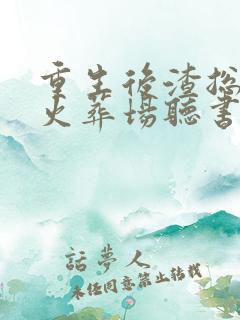 重生後渣攻
火葬場聽書
話夢人
未經同意禁止转载